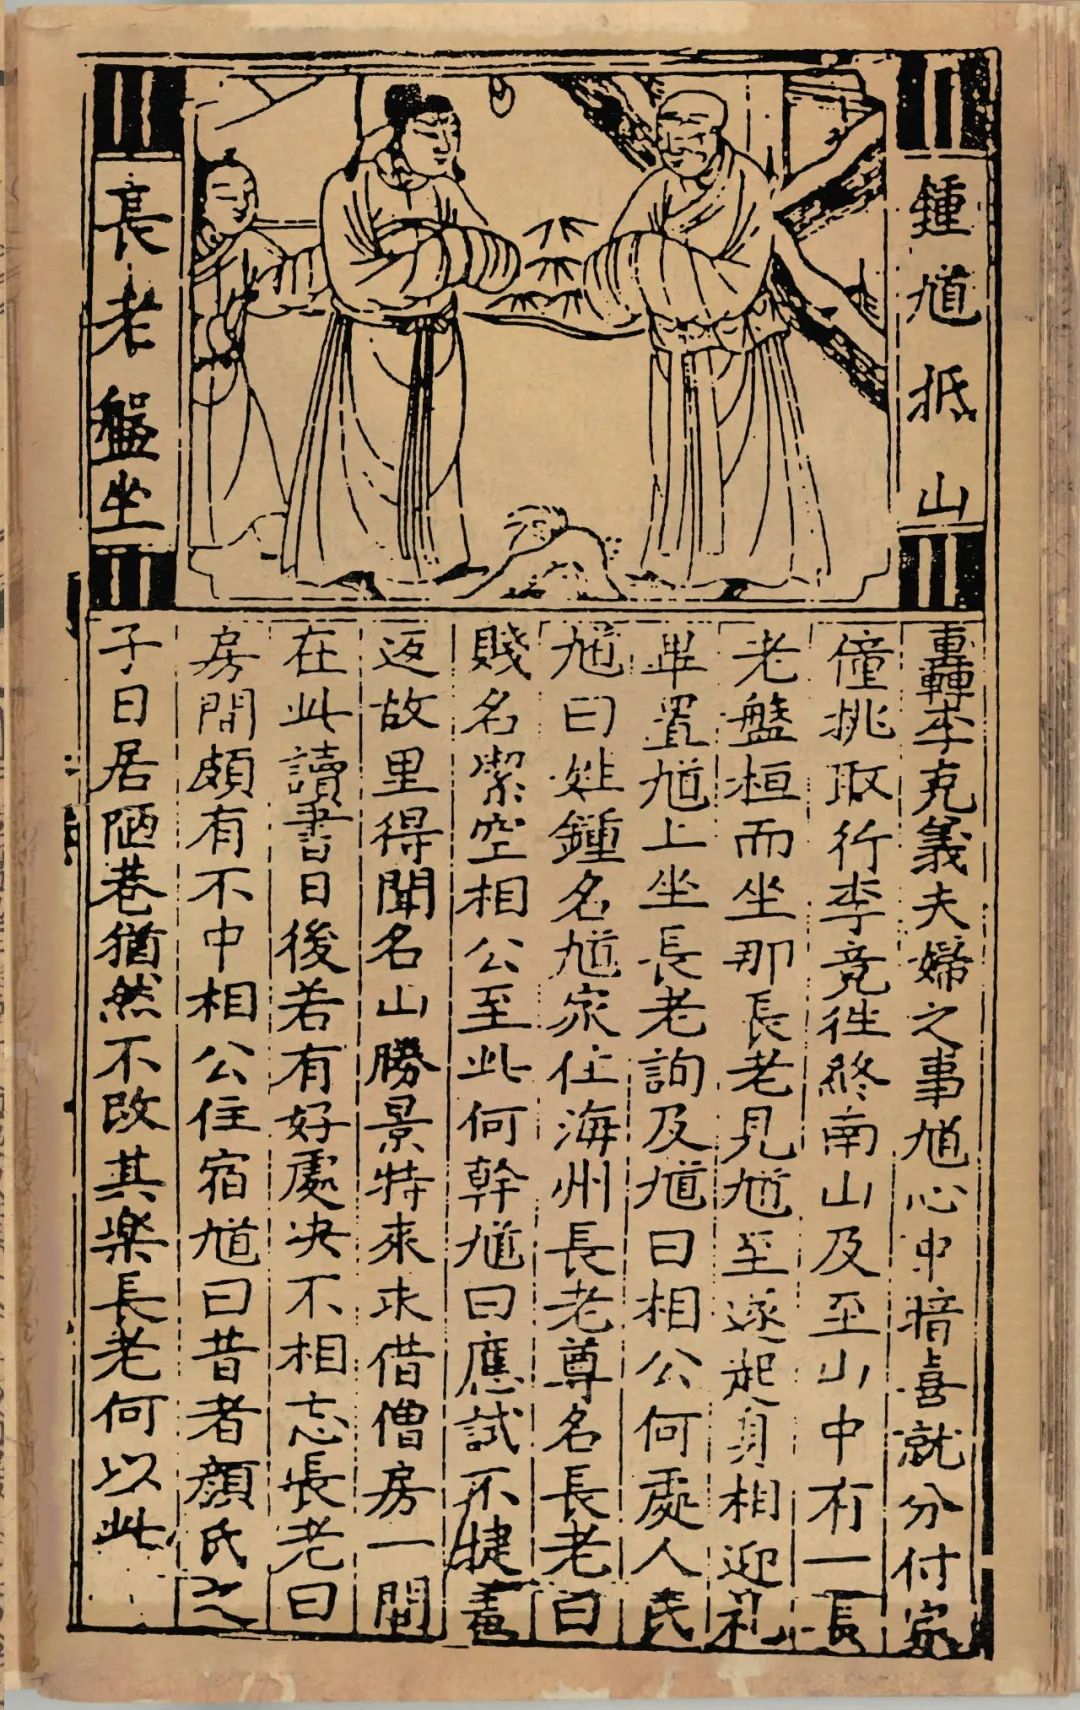 鍾馗抵山
長老盤坐
轟轟李克義夫婦之事馗心中暗喜就分付家
僮挑取行李竟往終南山及至山中有一長
老盤桓而坐那長老見馗至遂起身相迎礼
畢置馗上坐長老詢及馗曰相公何處人氏
馗曰姓鍾名馗家住海州長老尊名長老曰
賤名潔空相公至此何幹馗曰應試不捷羞
返故里得聞名山勝景特來求借僧房一間
在此讀書日後若有好處决不相忘長老曰
房間頗有不中相公住宿馗曰昔者顏氏之
子日居陋巷猶然不改其楽長老何以此